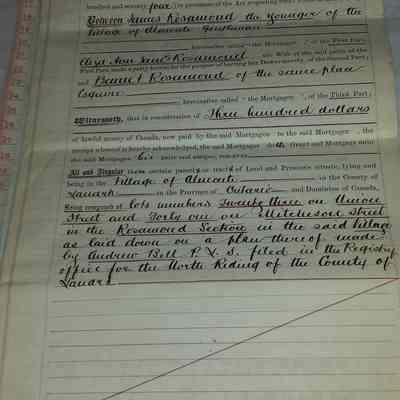 hundred and seventy four (in pursuance of the Act respecting Short Forms of
Between James Rosamond the younger of the
Village of Almonte Gentleman
hereinafter called "the Mortgagor" of the First Part;
Eliza Ann Rosamond Wife of the said party of the
First Part made a party hereto for the purpose of barring her Dower thereby, of the Second Part;
and Bennet Rosamond of the same place
Esquire
hereinafter called "the Mortgagee", of the Third Part;
Witnesseth, that in consideration of Three hundred dollars
of lawful money of Canada, now paid by the said Mortgagee to the said Mortgagor, the
receipt whereof is hereby acknowledged, the said Mortgagor doth Grant and Mortgage unto
the said Mortgagee his heirs and assigns, FOREVER
All and Singular certain parcel or tract of Land and Premises situate, lying and
being in the Village of Almonte in the County of
Lanark in the Province of Ontario and Dominion of Canada,
Being composed of lots numbers twenty three on Union
Street and Forty one on Mitcheson Street
in the Rosamond Section in the said Village
as laid down on a plan thereof made
by Andrew Bell P. L. S. filed in the Registry
office for the North Riding of the County of
Lanark